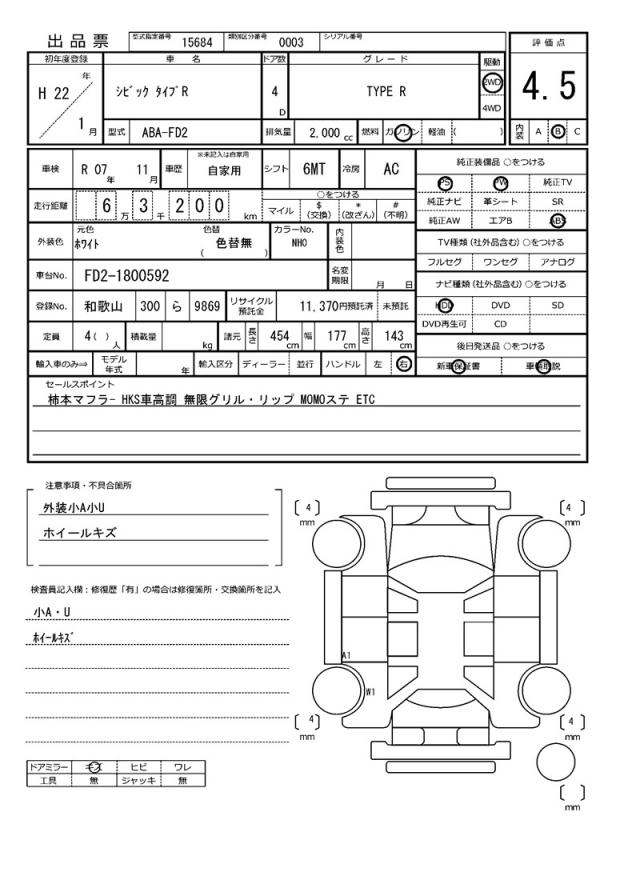 出品票 型式指定番号 15684 類別区分番号 0003 シリアル番号
評価点
4.5
内装 A B C
初年度登録 車名 ドア数 グレード 駆動
H 22 年 1 月
シビック タイプR 4 D TYPE R 2WD 4WD
型式 ABA-FD2 排気量 2,000 cc 燃料 ガソリン 軽油 ( )
車検 R 07 年 11 月 車歴 ※未記入は自家用 自家用 シフト 6MT 冷房 AC
走行距離 6 万 3 千 2 0 0 km
○をつける
マイル $ (交換) * (改ざん) # (不明)
外装色 元色 ホワイト 色替 ( 色替無 ) カラーNo. NHO 内装色
車台No. FD2-1800592 名変期限 月 日
登録No. 和歌山 300 ら 9869 リサイクル預託金 11,370円預託済 未預託
定員 4( ) 人 積載量 kg 諸元 長さ 454 cm 幅 177 cm 高さ 143 cm
輸入車のみ⇒ モデル年式 年 輸入区分 ディーラー 並行 ハンドル 左 右
純正装備品 ○をつける
PS PW 純正TV
純正ナビ 革シート SR
純正AW エアB ABS
TV種類 (社外品含む) ○をつける
フルセグ ワンセグ アナログ
ナビ種類 (社外品含む) ○をつける
HDD DVD SD
DVD再生可 CD
後日発送品 ○をつける
新車保証書 車輌取説
セールスポイント
柿本マフラ- HKS車高調 無限グリル・リップ MOMOステ ETC
注意事項・不具合箇所
外装小A小U
ホイールキズ
検査員記入欄：修復歴「有」の場合は修復箇所・交換箇所を記入
小A・U
ホイールキズ
ドアミラー キズ ヒビ ワレ
工具 無 ジャッキ 無
〔 4 〕 mm
〔 4 〕 mm
A1
W1
〔 4 〕 mm
〔 4 〕 mm
〔 〕 mm